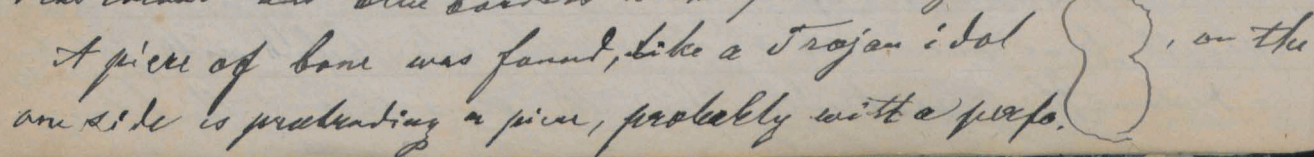 A piece of bone was found, like a Trojan idol , on the
one side is protruding a piece, probably with a perfo.